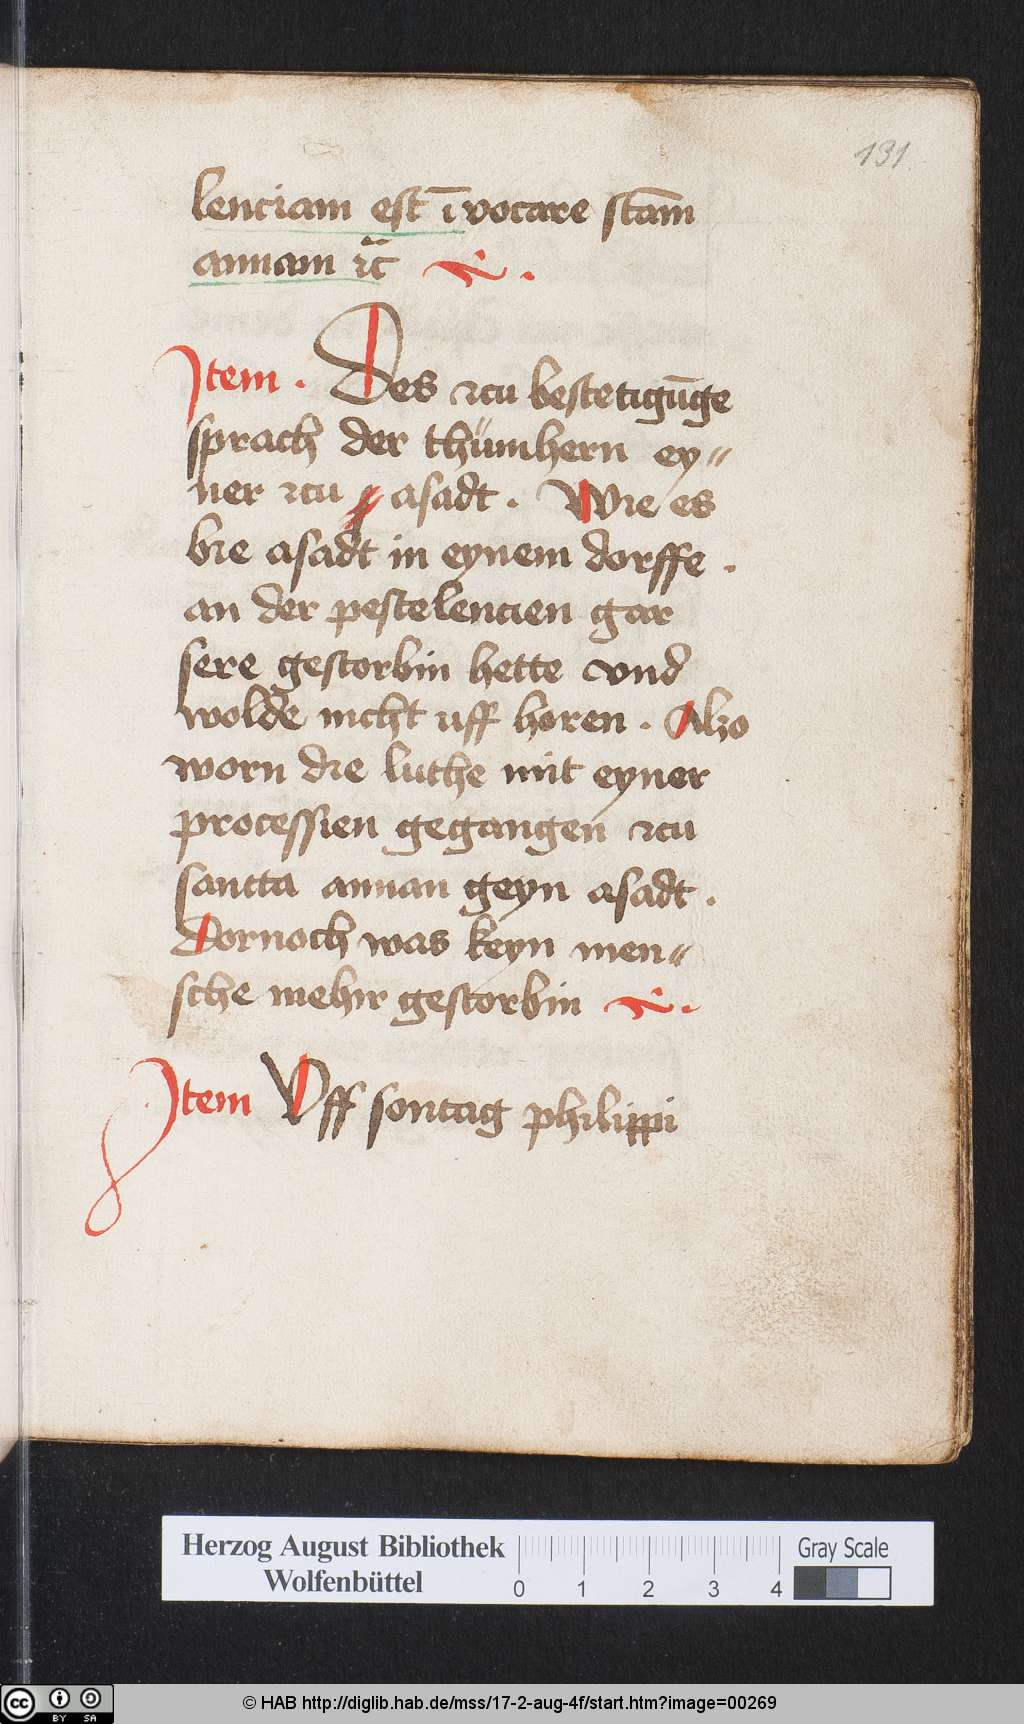 131
lenciam est īvocare stām
annam ⁊c̄
Item · Des zcu bestetigūge
sprach der thümhern ey=
ner zcu asadt . Wie es
bie asadt in eynem dorffe .
an der pestelencien gar
sere gestorbin hette vnd
wolde nicht uff horen . Alzo
worn die luthe mit eyner
processien gegangen zcu
sancta annan geyn asadt .
Dornoch was keyn men=
sche mehir gestorbin
Item Vff sontag philippi
Herzog August Bibliothek
Wolfenbüttel
0 1 2 3 4
Gray Scale
cc BY SA
© HAB http://diglib.hab.de/mss/17-2-aug-4f/start.htm?image=00269